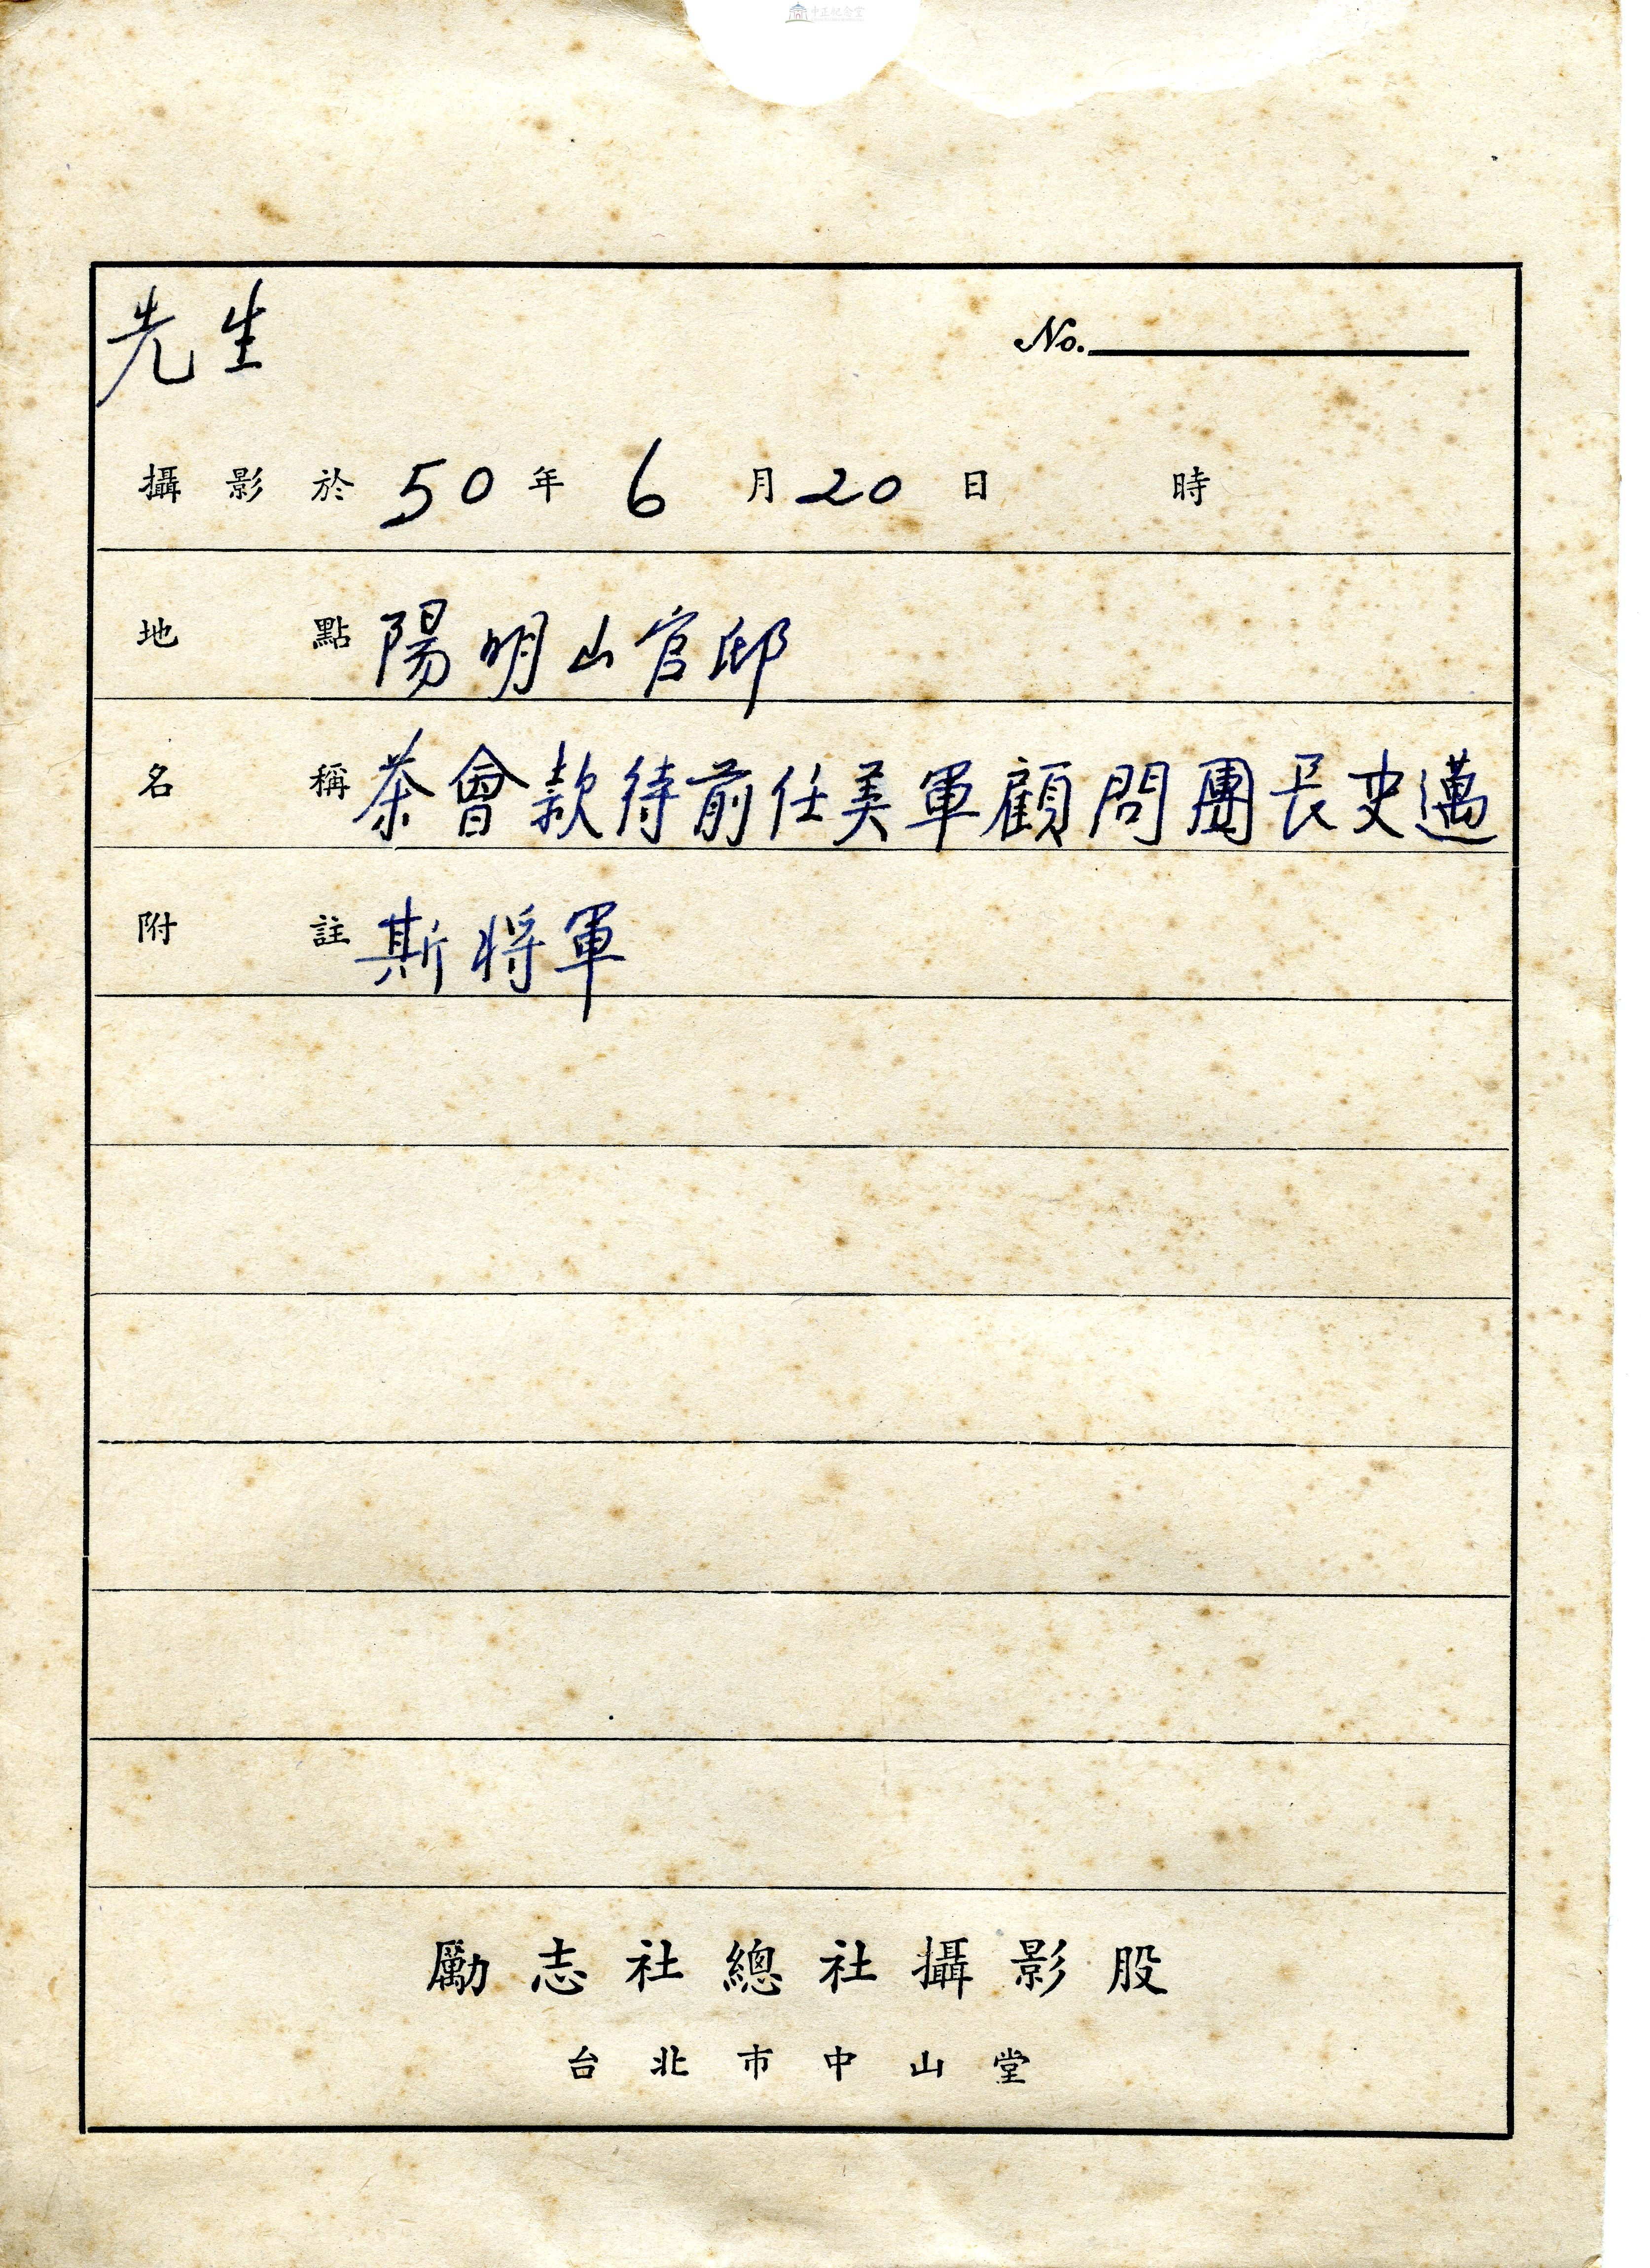 中正紀念堂
先生 No.
攝影於 50 年 6 月 20 日 時
地點 陽明山官邸
名稱 茶會款待前任美軍顧問團長史邁
附註 斯將軍
勵志社總社攝影股
台北市中山堂